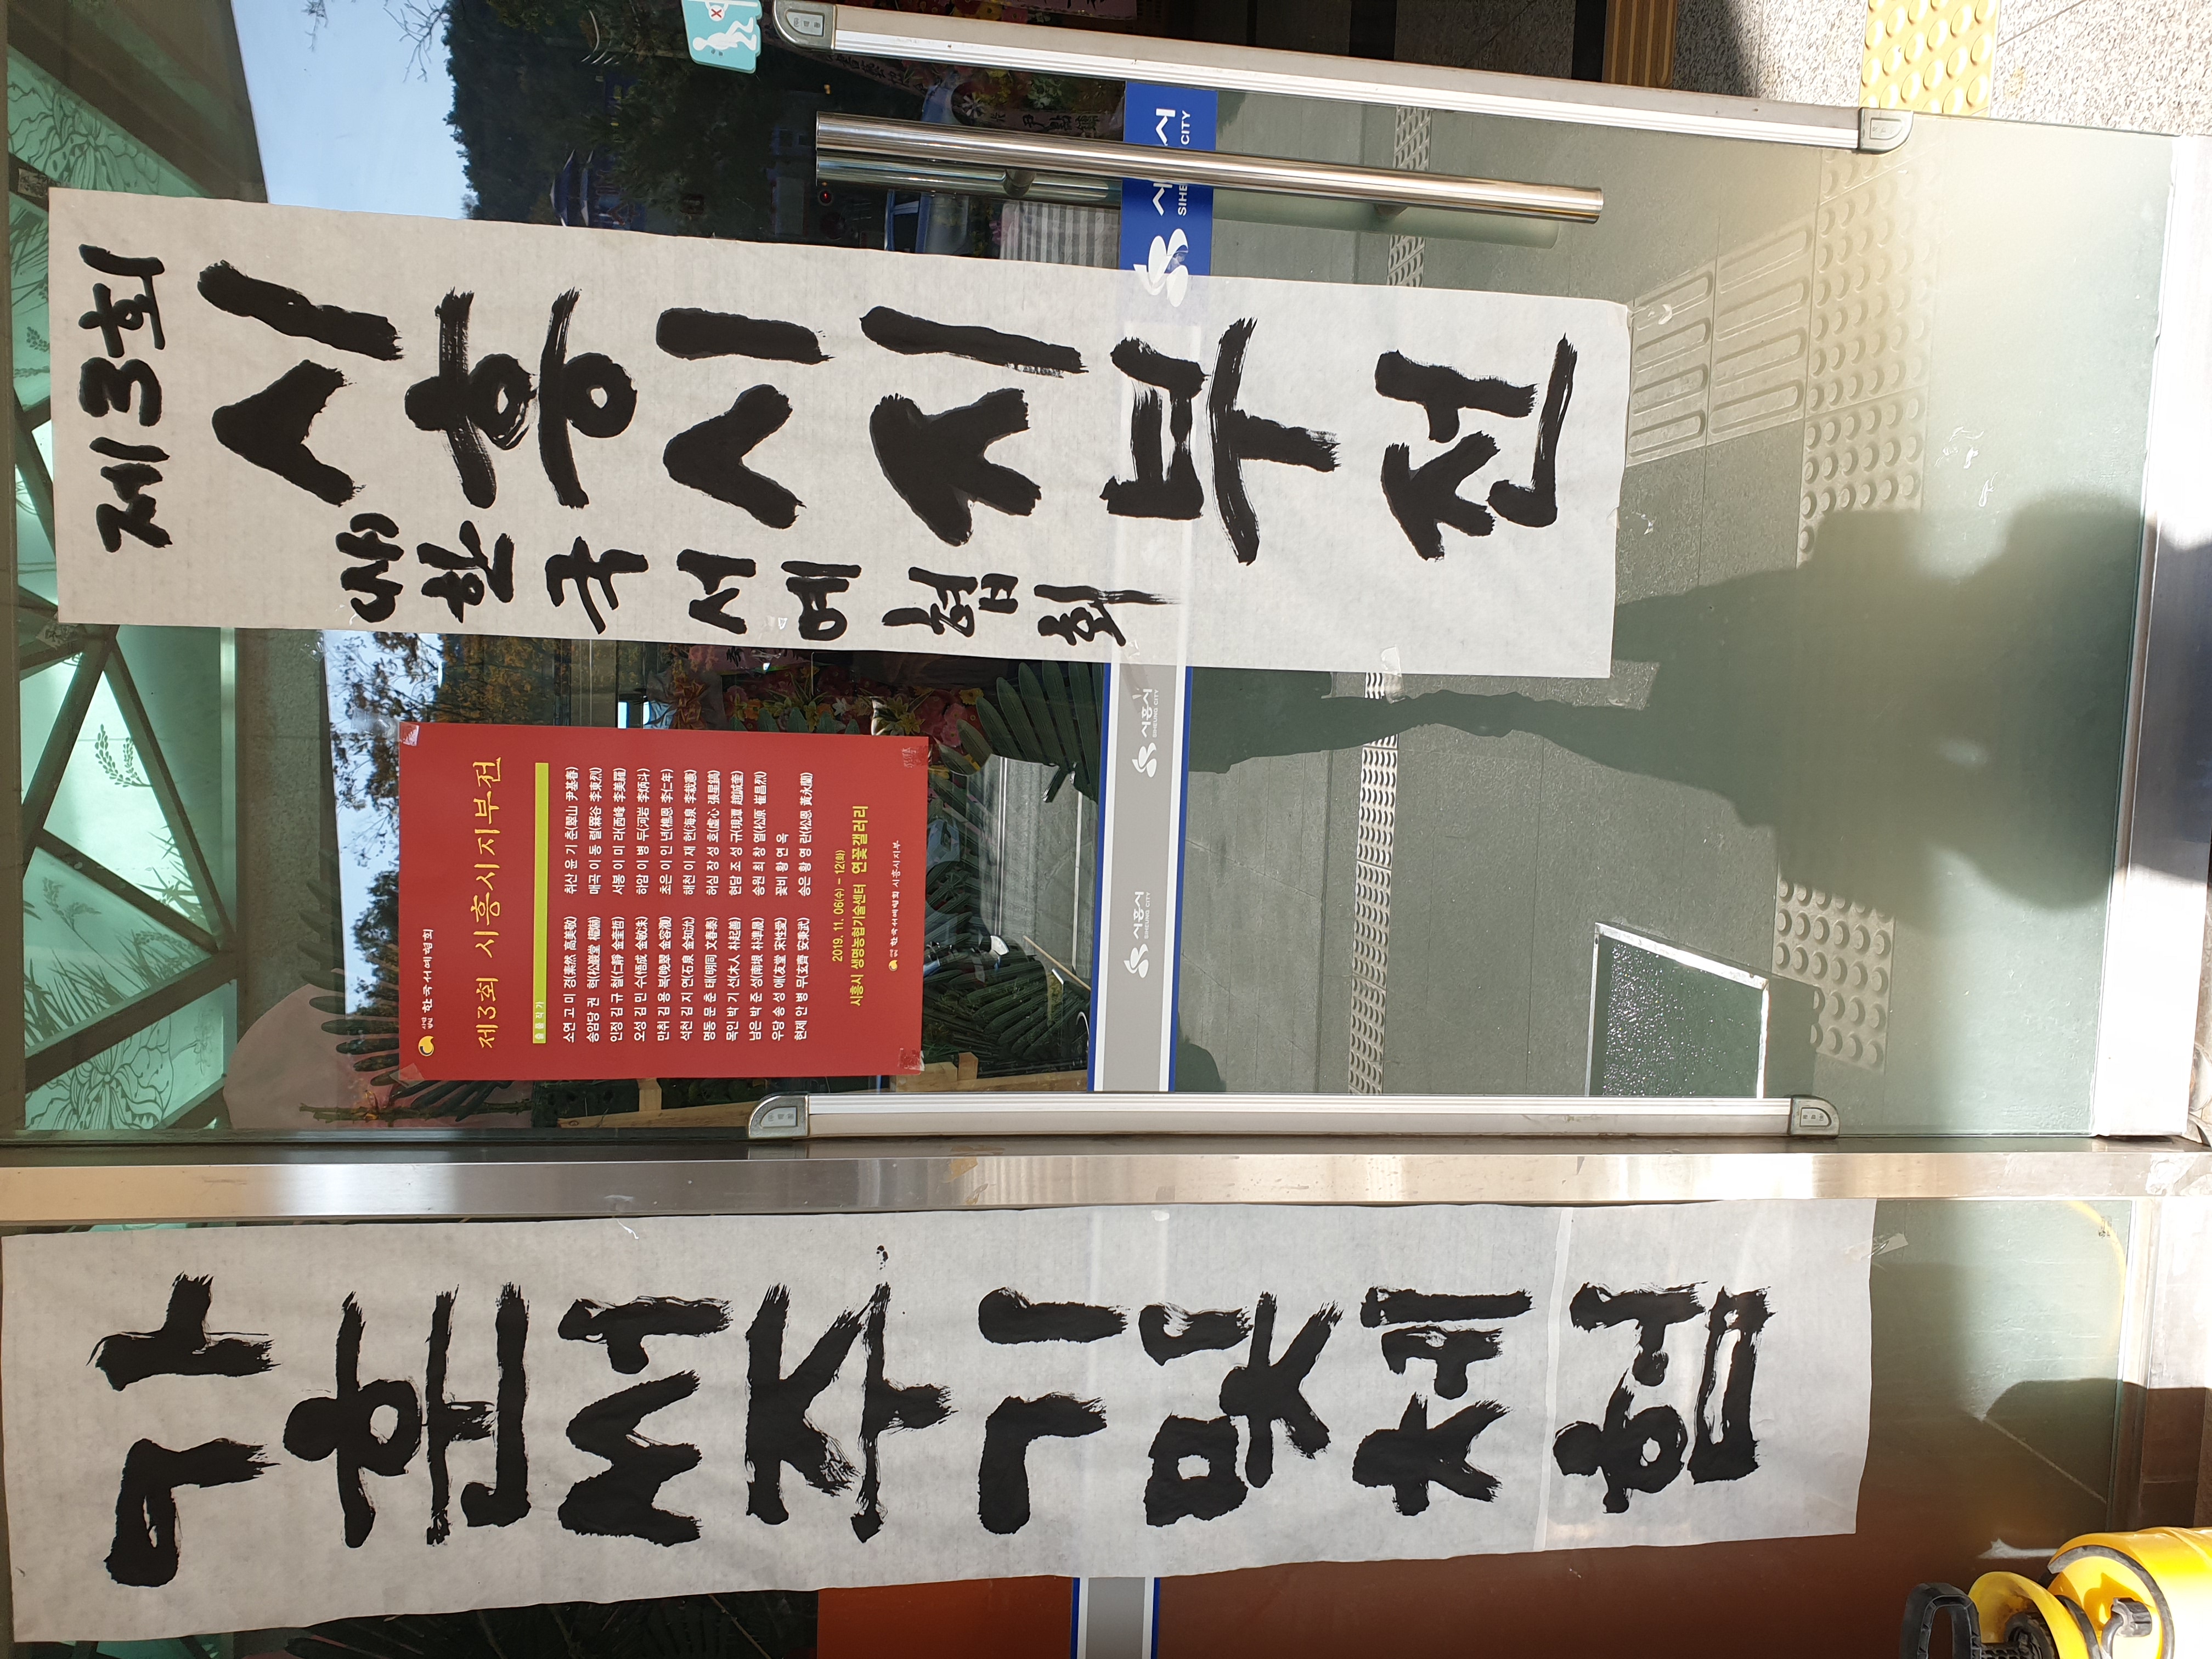 가훈써주기 및 체험
사)한국서예협회
제3회 시흥시지부전
한국서예협회
제3회 시흥시지부전
출품작가
소연 고 미 경(素然 高美敬)
송암당 권 혁(松巖堂 權赫)
인정 김 규 철(仁靜 金奎哲)
오성 김 민 수(悟成 金敏洙)
만취 김 용 복(晩翠 金容馥)
석천 김 지 연(石泉 金知沇)
명동 문 춘 태(明同 文春泰)
목인 박 기 선(木人 朴起善)
남은 박 준 성(南垠 朴準晟)
우당 송 성 애(友堂 宋性愛)
현제 안 병 무(玄齊 安秉武)
취산 윤 기 춘(翠山 尹基春)
매곡 이 동 렬(槑谷 李東烈)
서봉 이 미 라(西峰 李美羅)
하암 이 병 두(河岩 李炳斗)
초은 이 인 년(樵恩 李仁年)
해천 이 재 헌(海泉 李栽憲)
허심 장 성 호(虛心 張星鎬)
현담 조 성 규(現潭 趙誠奎)
송원 최 창 열(松原 崔昌烈)
꽃비 황 연 옥
송은 황 영 란(松恩 黃永蘭)
2019. 11. 06(수) - 12(화)
시흥시 생명농업기술센터 연꽃갤러리
한국서예협회 시흥시지부
시흥시
SIHEUNG CITY
시흥시
SIHEUNG CITY
CITY